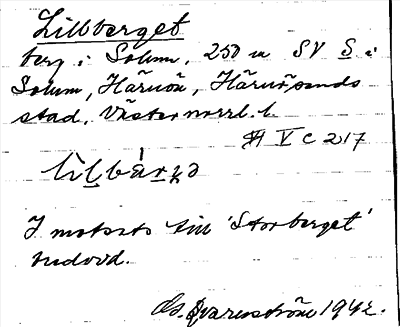 Lillberget
berg i Solum, 250 m SV S i
Solum, Härnön, Härnösands
stad, Västernorrl. l.
V C 217
I motsats till 'Storberget'
nedovd.
Qvarnström 1942.